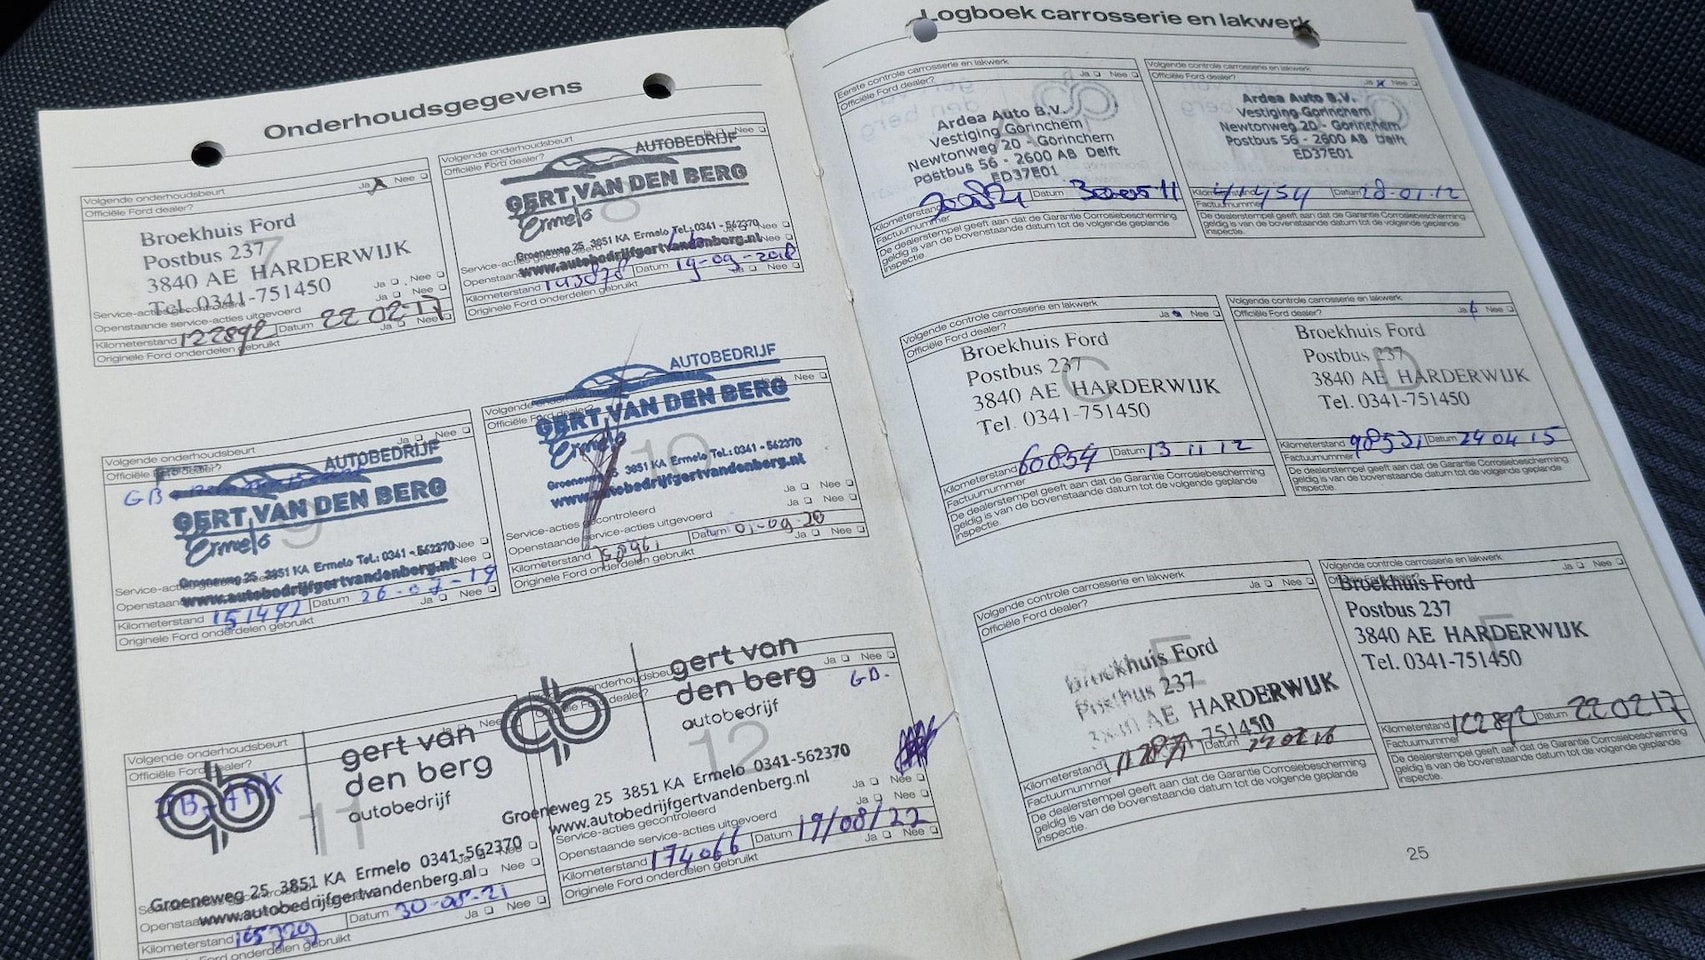 Onderhoudsgegevens
Volgende onderhoudsbeurt
Officiële Ford dealer?
Ja Nee
Broekhuis Ford
Postbus 237
3840 AE HARDERWIJK
Tel. 0341-751450
7
Ja Nee
Openstaande service-acties uitgevoerd
Ja Nee
Kilometerstand 122892 Datum 22 02-17
Originele Ford onderdelen gebruikt
Ja Nee
Volgende onderhoudsbeurt
Officiële Ford dealer?
Nee
AUTOBEDRIJF
GERT VAN DEN BERG
Ermelo
8
Groeneweg 25 3851 KA Ermelo Tel.: 0341 - 562370
www.autobedrijfgertvandenberg.nl
Kilometerstand Datum 19-09-2018
Originele Ford onderdelen gebruikt
Ja Nee
Volgende onderhoudsbeurt
Officiële
Ja Nee
GB
AUTOBEDRIJF
GERT VAN DEN BERG
Ermelo
9
Groeneweg 25 3851 KA Ermelo Tel.: 0341 - 562370
www.autobedrijfgertvandenberg.nl
Kilometerstand 151492 Datum 26-07-19
Originele Ford onderdelen gebruikt
Ja Nee
Officiële Ford dealer?
Nee
AUTOBEDRIJF
GERT VAN DEN BERG
Ermelo
10
Groeneweg 25 3851 KA Ermelo Tel.: 0341 - 562370
www.autobedrijfgertvandenberg.nl
Service-acties gecontroleerd
Ja Nee
Openstaande service-acties uitgevoerd
Ja Nee
Kilometerstand Datum 01-09-20
Originele Ford onderdelen gebruikt
Ja Nee
Volgende onderhoudsbeurt
Officiële Ford dealer?
Nee
gert van
den berg
autobedrijf
11
Groeneweg 25 3851 KA Ermelo 0341-562370
www.autobedrijfgertvandenberg.nl
Nee
Kilometerstand 165729 Datum 30-08-21
Originele Ford onderdelen gebruikt
Ja Nee
Ja Nee
gert van
den berg
autobedrijf
GB.
12
Groeneweg 25 3851 KA Ermelo 0341-562370
www.autobedrijfgertvandenberg.nl
Service-acties gecontroleerd
Ja Nee
Openstaande service-acties uitgevoerd
Ja Nee
Kilometerstand 174066 Datum 19/08/22
Originele Ford onderdelen gebruikt
Ja Nee
Logboek carrosserie en lakwerk
Eerste controle carrosserie en lakwerk
Officiële Ford dealer?
Ja Nee
Ardea Auto B.V.
Vestiging Gorinchem
Newtonweg 20 - Gorinchem
Postbus 56 - 2600 AB Delft
ED37E01
Kilometerstand Datum
Factuurnummer
De dealerstempel geeft aan dat de Garantie Corrosiebescherming
geldig is van de bovenstaande datum tot de volgende geplande
inspectie.
Volgende controle carrosserie en lakwerk
Officiële Ford dealer?
Ja Nee
Ardea Auto B.V.
Vestiging Gorinchem
Newtonweg 20 - Gorinchem
Postbus 56 - 2600 AB Delft
ED37E01
Kilometerstand 41454 Datum 28-01-12
Factuurnummer
De dealerstempel geeft aan dat de Garantie Corrosiebescherming
geldig is van de bovenstaande datum tot de volgende geplande
inspectie.
Volgende controle carrosserie en lakwerk
Officiële Ford dealer?
Ja Nee
Broekhuis Ford
Postbus 237
3840 AE HARDERWIJK
Tel. 0341-751450
C
Kilometerstand 60854 Datum 13 11 12
Factuurnummer
De dealerstempel geeft aan dat de Garantie Corrosiebescherming
geldig is van de bovenstaande datum tot de volgende geplande
inspectie.
Volgende controle carrosserie en lakwerk
Officiële Ford dealer?
Ja Nee
Broekhuis Ford
Postbus 237
3840 AE HARDERWIJK
Tel. 0341-751450
D
Kilometerstand 98531 Datum 24 04 15
Factuurnummer
De dealerstempel geeft aan dat de Garantie Corrosiebescherming
geldig is van de bovenstaande datum tot de volgende geplande
inspectie.
Volgende controle carrosserie en lakwerk
Officiële Ford dealer?
Ja Nee
Broekhuis Ford
Postbus 237
AE HARDERWIJK
751450
E
Kilometerstand Datum 22 02 16
Factuurnummer
De dealerstempel geeft aan dat de Garantie Corrosiebescherming
geldig is van de bovenstaande datum tot de volgende geplande
inspectie.
Volgende controle carrosserie en lakwerk
Ja Nee
Broekhuis Ford
Postbus 237
3840 AE HARDERWIJK
Tel. 0341-751450
F
Kilometerstand 122892 Datum 22 02 17
Factuurnummer
De dealerstempel geeft aan dat de Garantie Corrosiebescherming
geldig is van de bovenstaande datum tot de volgende geplande
inspectie.
25